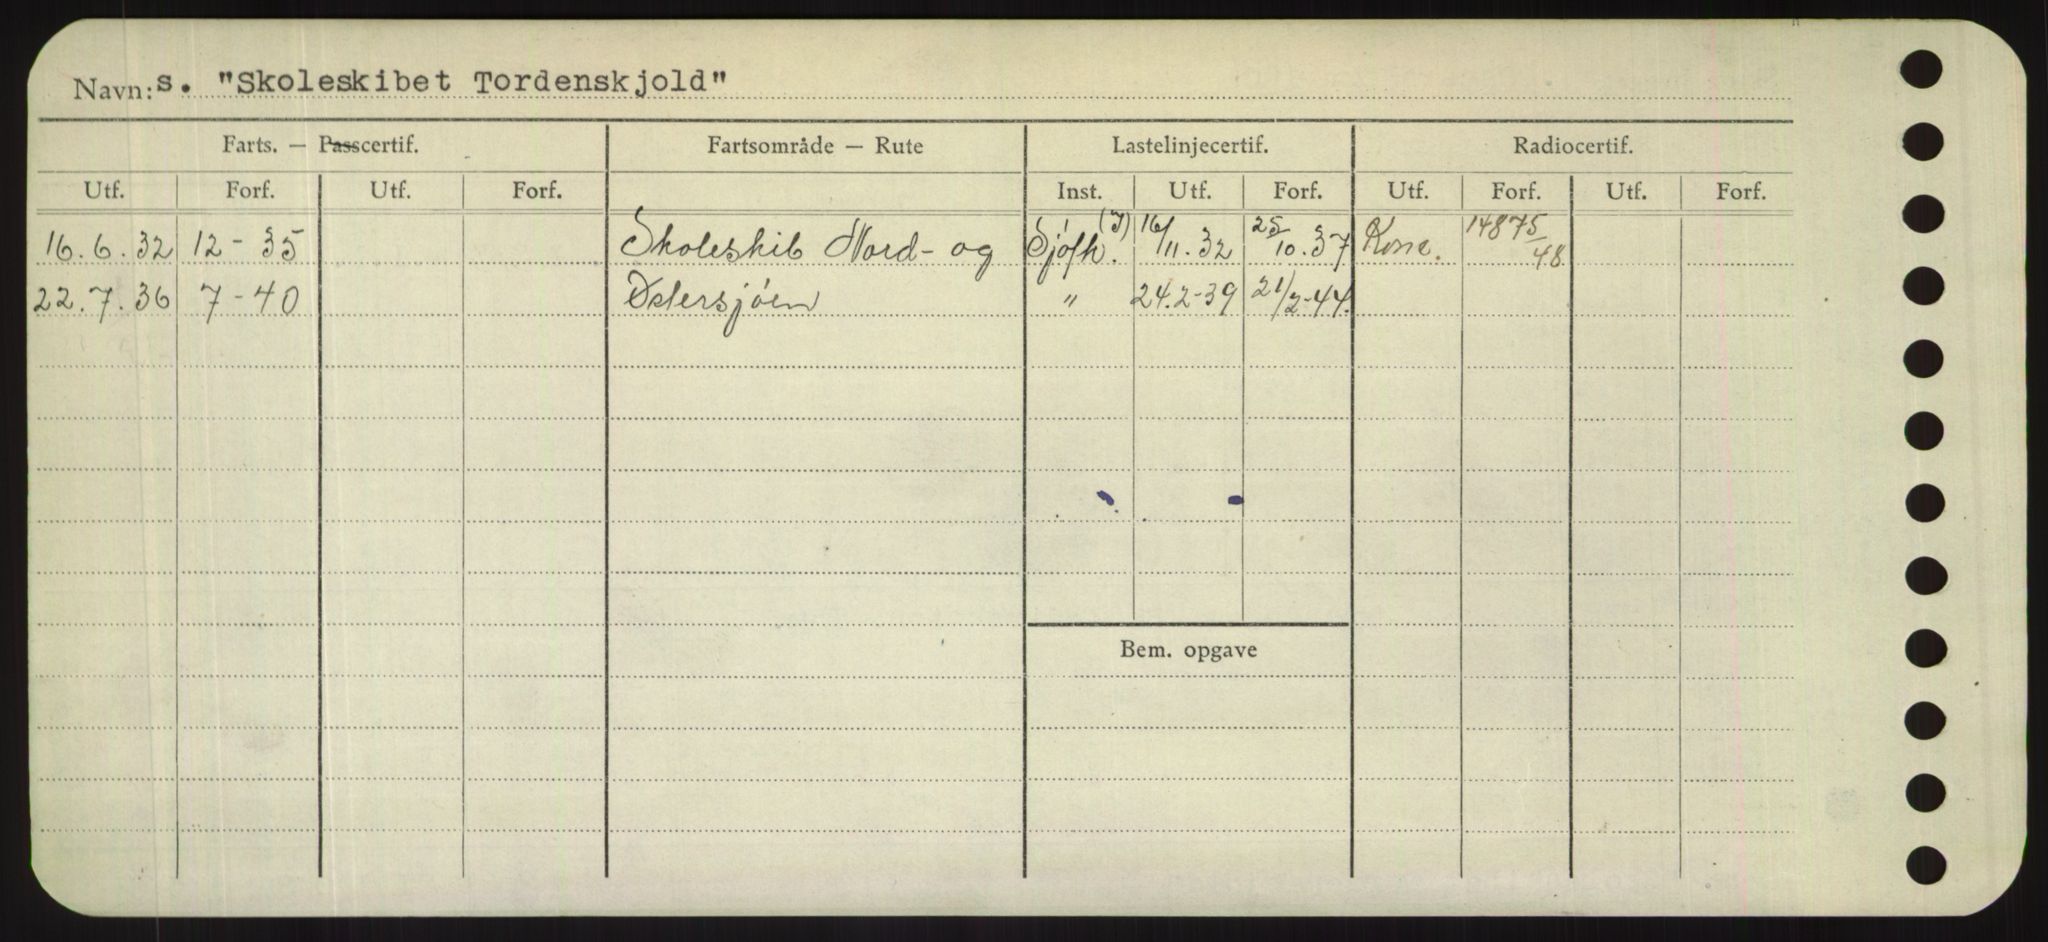 Navn: s. "Skoleskibet Tordenskjold"
Farts. — Passcertif. Fartsområde — Rute Lastelinjecertif. Radiocertif.
Utf. Forf. Utf. Forf. Inst. Utf. Forf. Utf. Forf. Utf. Forf.
16.6.32 12-35 Skoleskib Nord- og Sjøfk. (I) 16/11.32 25/10.37 14875/48
22.7.36 7-40 Østersjøen " 24.2-39 21/2-44.
Bem. opgave